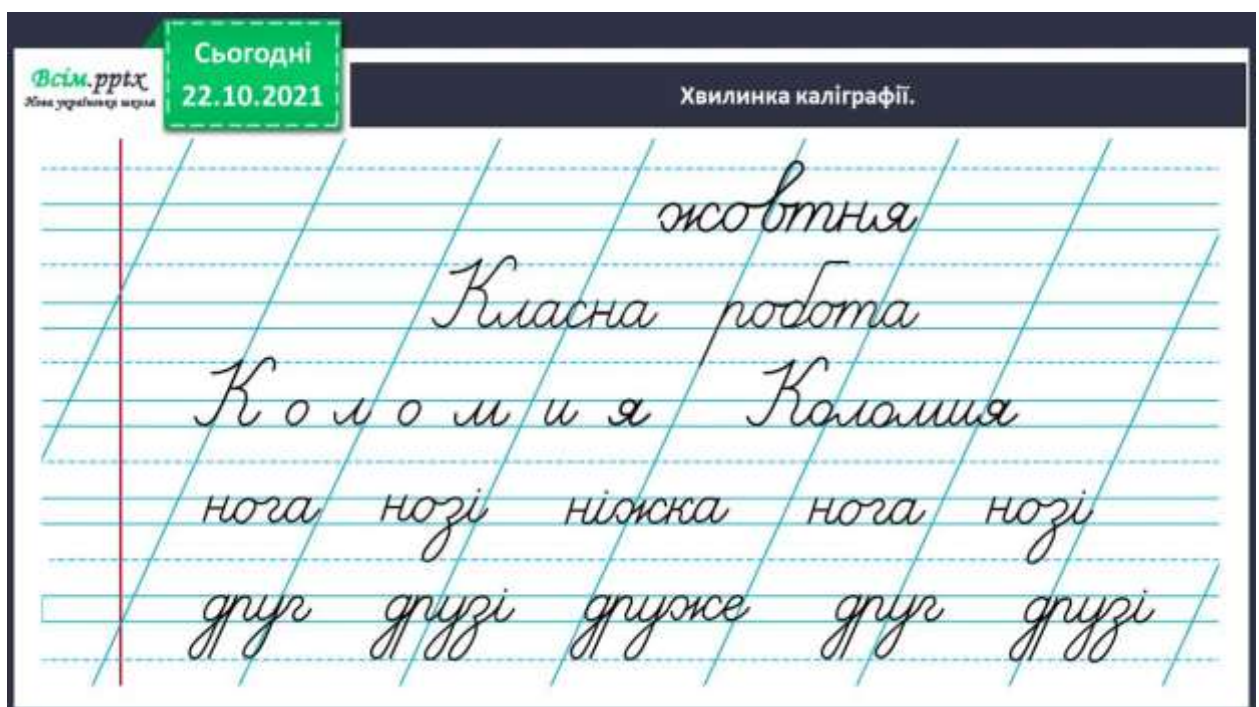 Всім.pptx
Нова українська школа
Сьогодні
22.10.2021
Хвилинка каліграфії.
жовтня
Класна робота
К о л о м и я Коломия
нога нозі ніжка нога нозі
друг друзі друже друг друзі